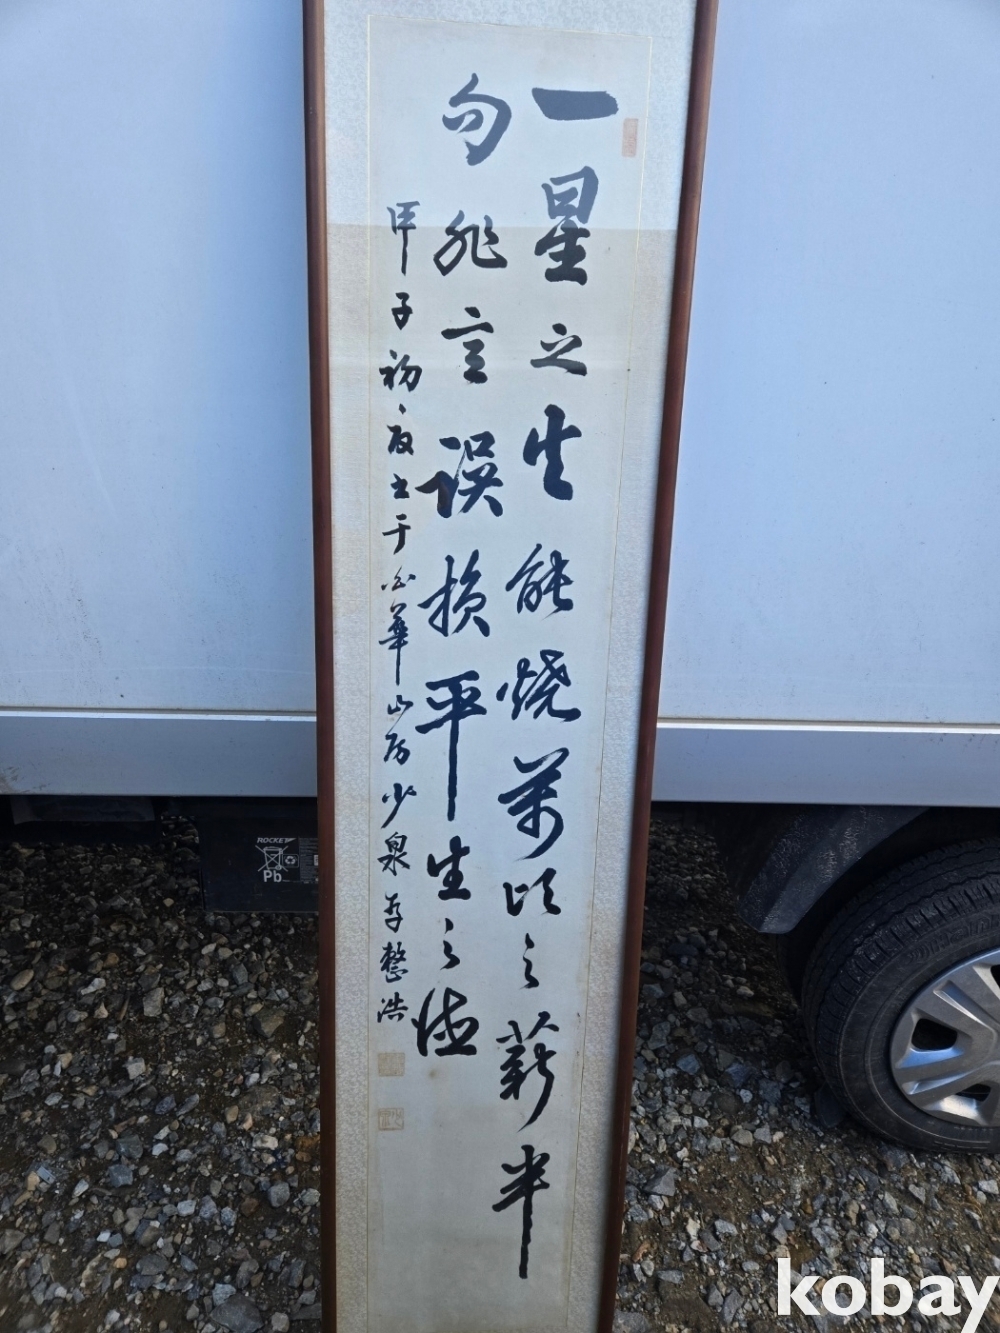 一星之火能燒萬頃之薪半
句非言誤損平生之德
甲子初夏書于白華山房少泉 整浩
ROCKET
Pb
kobay